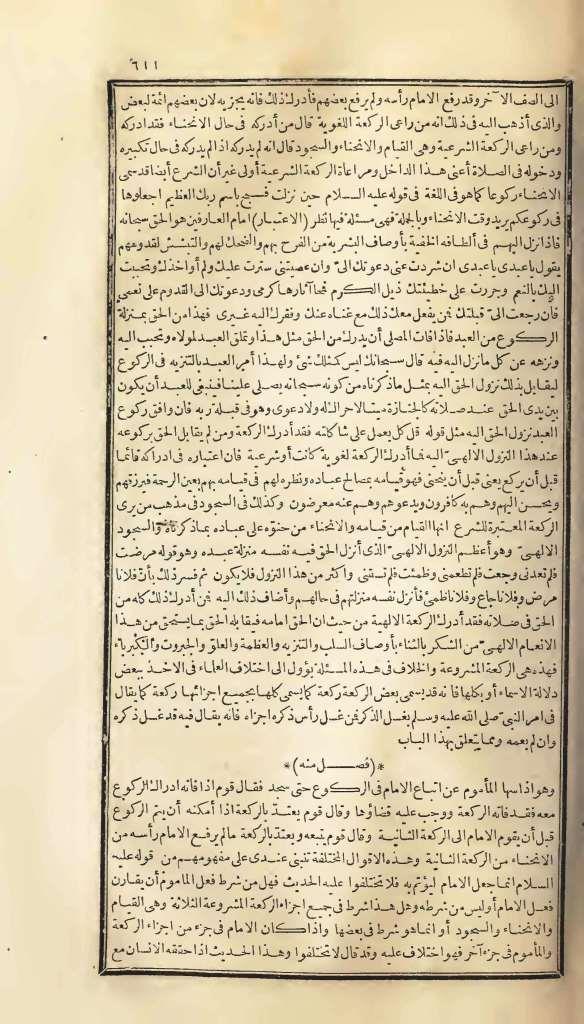 ٦١١
الى الصف الآخر وقد رفع الامام رأسه ولم يرفع بعضهم فأدرك ذلك فانه يجزيه لان بعضهم ائمة لبعض
والذى أذهب اليه فى ذلك انه من راعى الركعة اللغوية قال من أدركه فى حال الانحناء فقد ادركه
ومن راعى الركعة الشرعية وهى القيام والانحناء والسجود قال انه لم يدركه اذ لم يدركه فى حال تكبيره
ودخوله فى الصلاة أعنى هذا الداخل ومراعاة الركعة الشرعية أولى غير أن الشرع أيضا قد سمى
الانحناء ركوعا كما هو فى اللغة فى قوله عليه السلام حين نزلت فسبح باسم ربك العظيم اجعلوها
فى ركوعكم يريد وقت الانحناء وبالجملة فهى مسئلة فيها نظر (الاعتبار) امام العارفين هو الحق سبحانه
فاذا نزل اليهم فى ألطافه الخفية بأوصاف البشرية من الفرح بهم والضحك لهم والتبشش لقدومهم
يقول يا عبدى يا عبدى ان شردت عنى دعوتك الىّ وان عصيتنى سترت عليك ولم أواخذك وتحببت
اليك بالنعم وجررت على خطيئتك ذيل الكرم فمحا آثارها كرمى ودعوتك الى القدوم على نعمى
فان رجعت الىّ قبلتك فمن يفعل معك ذلك مع غناه عنك وفقرك اليه غيرى فهذا من الحق بمنزلة
الركوع من العبد فاذا فات المصلى أن يدرك من الحق مثل هذا وتملق العبد لمولاه وتحبب اليه
ونزهه عن كل ما نزل اليه فيه قال سبحانك ليس كمثلك شئ ولهذا أمر العبد بالتنزيه فى الركوع
ليقابل بذلك نزول الحق اليه بمثل ما ذكرناه من كونه سبحانه يصلى علينا فينبغى للعبد أن يكون
بين يدى الحق عند صلاته كالجنازة ميتا لا حراك له ولا دعوى وهو فى قبلة ربه فان وافق ركوع
العبد نزول الحق اليه مثل قوله قل كل يعمل على شاكلته فقد أدرك الركعة ومن لم يقابل الحق بركوعه
عند هذا النزول الالهىّ اليه فما أدرك الركعة لغوية كانت أو شرعية فان اعتباره فى ادراكه قائما
قبل أن يركع يعنى قبل أن ينحنى فهو قيامه بمصالح عباده ونظره لهم فى قيامه بهم بعين الرحمة فيرزقهم
ويحسن اليهم وهم به كافرون ويدعوهم وهم عنه معرضون وكذلك فى السجود فى مذهب من يرى
الركعة المعتبرة للشرع انها القيام من قيامه والانحناء من حنوّه على عباده بما ذكرناه والسجود
الالهىّ وهو أعظم النزول الالهىّ الذى أنزل الحق فيه نفسه منزلة عبده وهو قوله مرضت
فلم تعدنى وجعت فلم تطعمنى وظمئت فلم تسقنى واكثر من هذا النزول فلا يكون ثم فسر ذلك بأن فلانا
مرض وفلانا جاع وفلانا ظمئ فأنزل نفسه منزلتهم فى حالهم وأضاف ذلك اليه فمن أدرك ذلك كله من
الحق فى صلاته فقد أدرك الركعة الالهية من حيث ان الحق امامه فيقابله الحق بما يستحق من هذا
الانعام الالهىّ من الشكر بالثناء بأوصاف السلب والتنزيه والعظمة والعلو والجبروت والكبرياء
فهذه هى الركعة المشروعة والخلاف فى هذه المسئلة يؤول الى اختلاف العلماء فى الاخذ ببعض
دلالة الاسماء أو بكلها فانه قد يسمى بعض الركعة ركعة كما يسمى كلها بجميع اجزائها ركعة كما يقال
فى امر النبىّ صلى الله عليه وسلم بغسل الذكر فمن غسل رأس ذكره اجزاء فانه يقال فيه قد غسل ذكره
وان لم يعمه ومما يتعلق بهذا الباب
*(فصل منه)*
وهو اذا سها المأموم عن اتباع الامام فى الركوع حتى سجد فقال قوم اذا فاته ادراك الركوع
معه فقد فاته الركعة ووجب عليه قضاؤها وقال قوم يعتدّ بالركعة اذا أمكنه أن يتم الركوع
قبل أن يقوم الامام الى الركعة الثانية وقال قوم يتبعه ويعتدّ بالركعة ما لم يرفع الامام رأسه من
الانحناء من الركعة الثانية وهذه الاقوال المختلفة تنبنى عندى على مفهومهم من قوله عليه
السلام انما جعل الامام ليؤتم به فلا تختلفوا عليه الحديث فهل من شرط فعل المأموم أن يقارن
فعل الامام أو ليس من شرطه وهل هذا شرط فى جميع اجزاء الركعة المشروعة الثلاثة وهى القيام
والانحناء والسجود أو انما هو شرط فى بعضها واذا كان الامام فى جزء من اجزاء الركعة
والمأموم فى جزء آخر فهو اختلاف عليه وقد قال لا تختلفوا وهذا الحديث اذا حققه الانسان مع